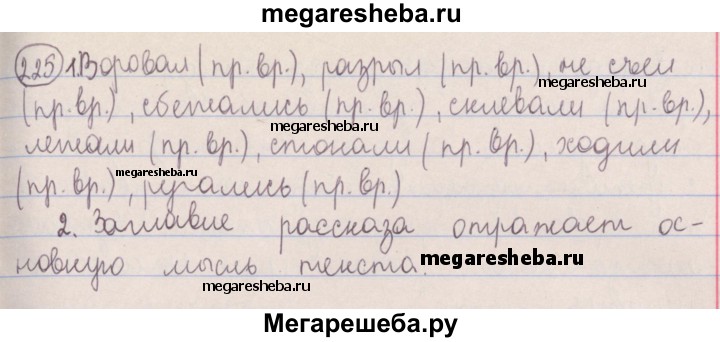 megaresheba.ru
225 1. Воровал (пр. вр.), разрыл (пр. вр.), не съел
megaresheba.ru
(пр. вр.), сбежались (пр. вр.), склевали (пр. вр.),
megaresheba.ru
лежали (пр. вр.), стонали (пр. вр.), ходили
megaresheba.ru
(пр. вр.), ругались (пр. вр.)
2. Заглавие рассказа отражает ос-
новную мысль текста.
megaresheba.ru
megaresheba.ru
Мегарешеба.ру